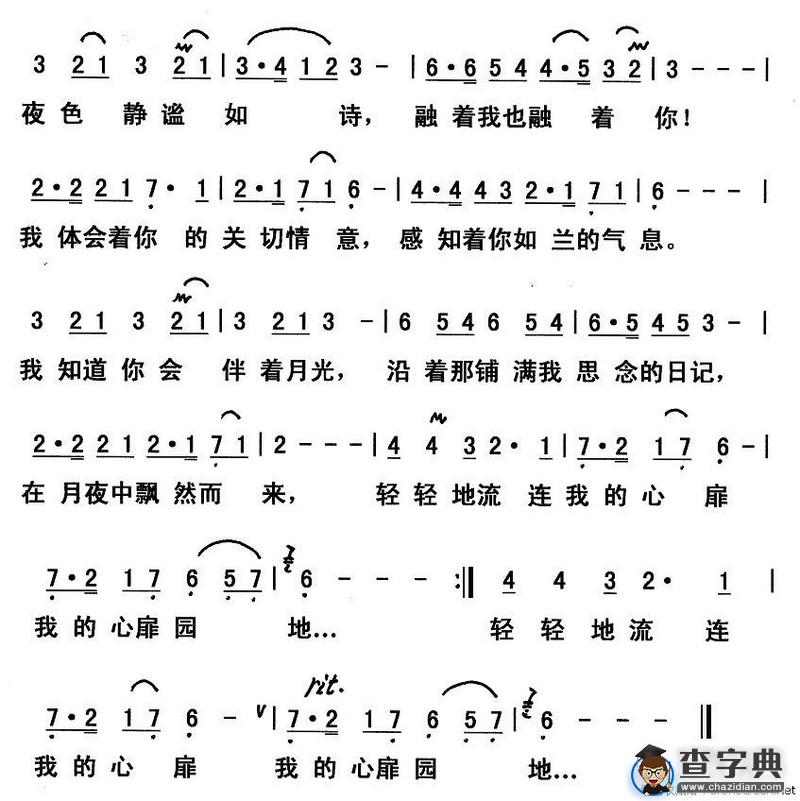 3 21 3 21 | 3·412 3 - | 6·6 54 4·5 32 | 3 - - - |
夜色 静谧 如 诗， 融着我也融 着 你！
2·2 21 7· 1 | 2·1 71 6 - | 4·4 43 2·1 71 | 6 - - - |
我 体会着你 的关切情 意， 感 知着你如 兰的气息。
3 21 3 21 | 3 23 3 - | 6 54 6 54 | 6·5 45 3 - |
我 知道你会 伴着月光， 沿着那铺满我思 念的日记，
2·2 21 2·1 71 | 2 - - - | 4 4 3 2· 1 | 7·2 17 6 - |
在 月夜中飘 然而 来， 轻轻地流 连我的心 扉
7·2 17 6 57 | 6 - - - :‖ 4 4 3 2· 1 |
我的心扉园 地… 轻轻地流 连
rit.
7·2 17 6 - V | 7·2 17 6 57 | 6 - - - ‖
我的心 扉 我的心扉园 地…
查字典
www.chazidian.com